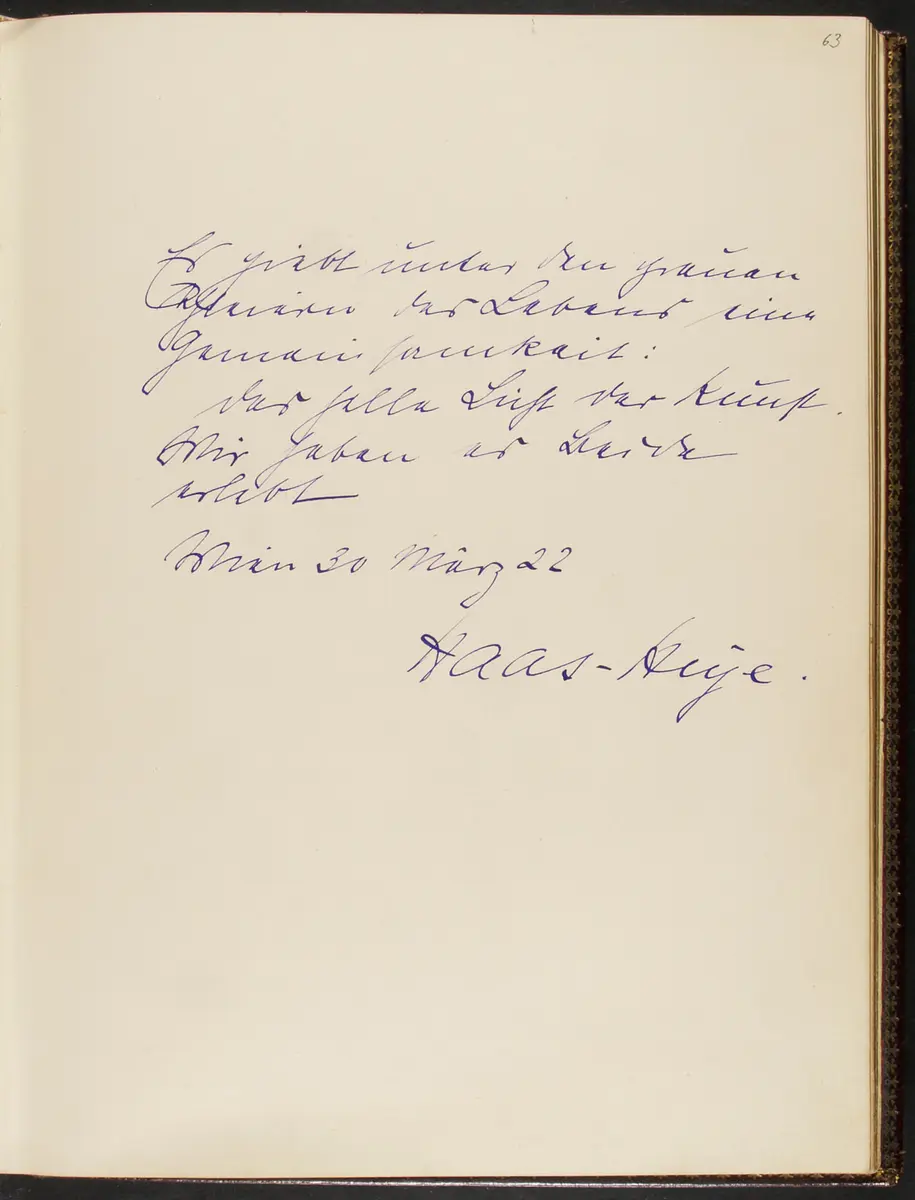 63
Es giebt unter den grauen
Schleiern des Lebens eine
Gemeinsamkeit:
das helle Licht der Kunst.
Wir haben es Beide
erlebt
Wien 30 März 22
Haas-Heye.